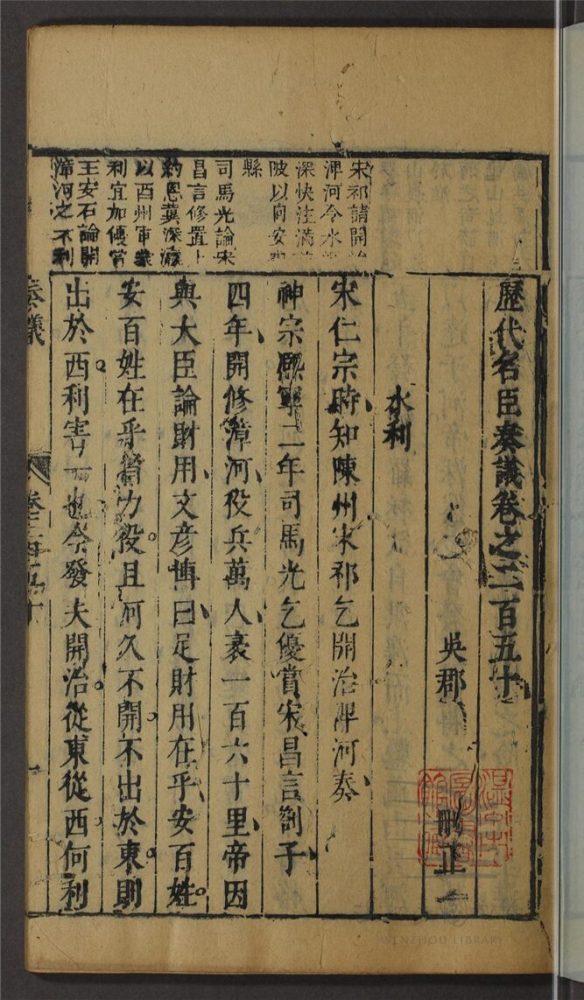 歷代名臣奏議卷之二百五十
吳郡
刪正
水利
宋仁宗時知陳州宋祁乞開治渒河奏
神宗熙寧二年司馬光乞優賞宋昌言劄子
四年開修漳河役兵萬人袤一百六十里帝因
與大臣論財用文彥博曰足財用在乎安百姓
安百姓在乎省力役且河久不開不出於東則
出於西利害一也今發夫開治從東從西何利
宋祁請開
渒河令水
深快注滿
陂以向安
縣
司馬光論宋
昌言修置上
約恩冀深瀛
以西州軍
利宜加優賞
王安石論開
漳河之不利
奏議
一
WENZHOU LIBRARY